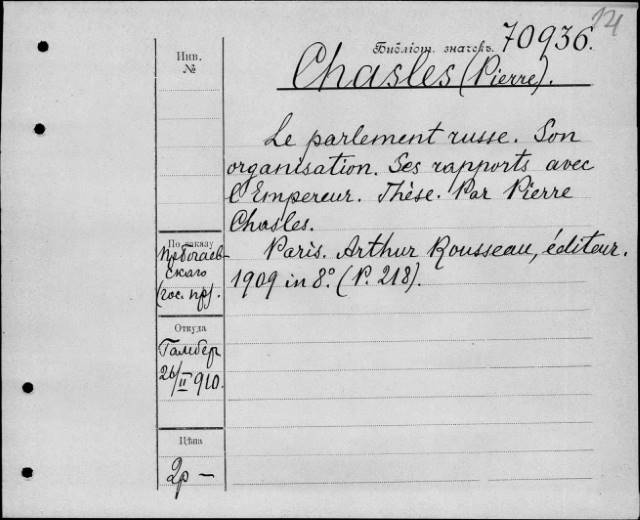 14
Библіот. значекъ. 70936.
Инв.
№
Chasles (Pierre).
Le parlement russe. Son
organisation. Ses rapports avec
l'Empereur. Thèse. Par Pierre
Chasles.
Paris. Arthur Rousseau, éditeur.
1909 in 8º. (P. 218).
По заказу
скаго
(гос. пр).
Откуда
Гамбер
26/II 910.
Цѣна
2р —